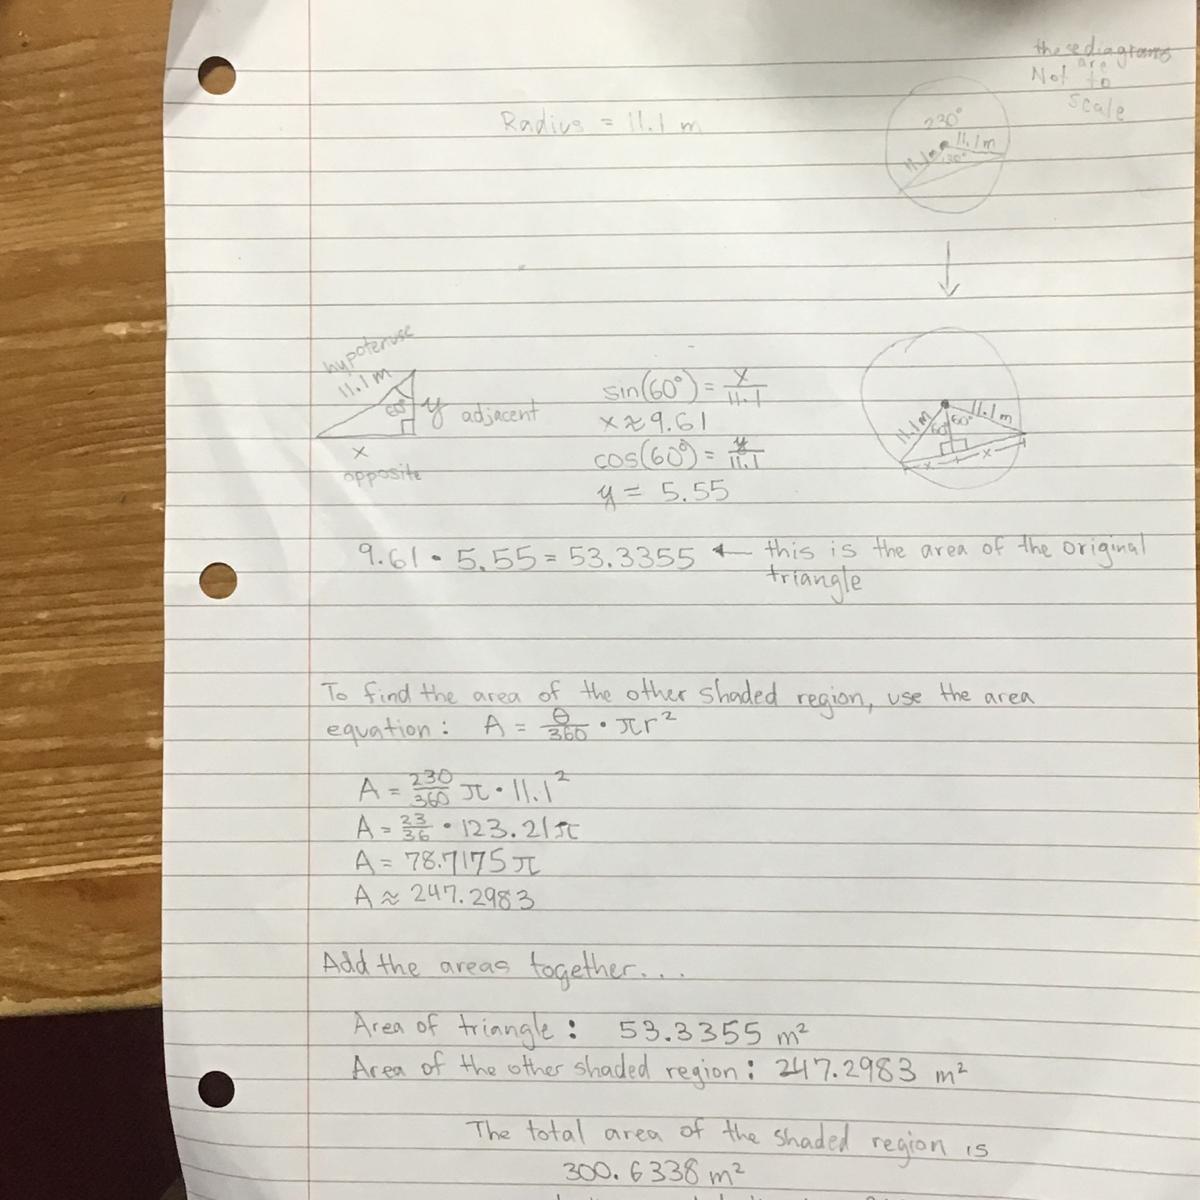 these diagrams
are
Not to
scale
Radius = 11.1 m
230°
11.1 m
11.1 m
hypotenuse
11.1 m
60°
y adjacent
x
opposite
sin(60°) = x/11.1
x ≈ 9.61
cos(60°) = y/11.1
y = 5.55
11.1m
11.1m
60°
60°
x
x
9.61 • 5.55 = 53.3355 ← this is the area of the original
triangle
To find the area of the other shaded region, use the area
equation: A = θ/360 • πr²
A = 230/360 π • 11.1²
A = 23/36 • 123.21π
A = 78.7175π
A ≈ 247.2983
Add the areas together...
Area of triangle: 53.3355 m²
Area of the other shaded region: 247.2983 m²
The total area of the shaded region is
300.6338 m²